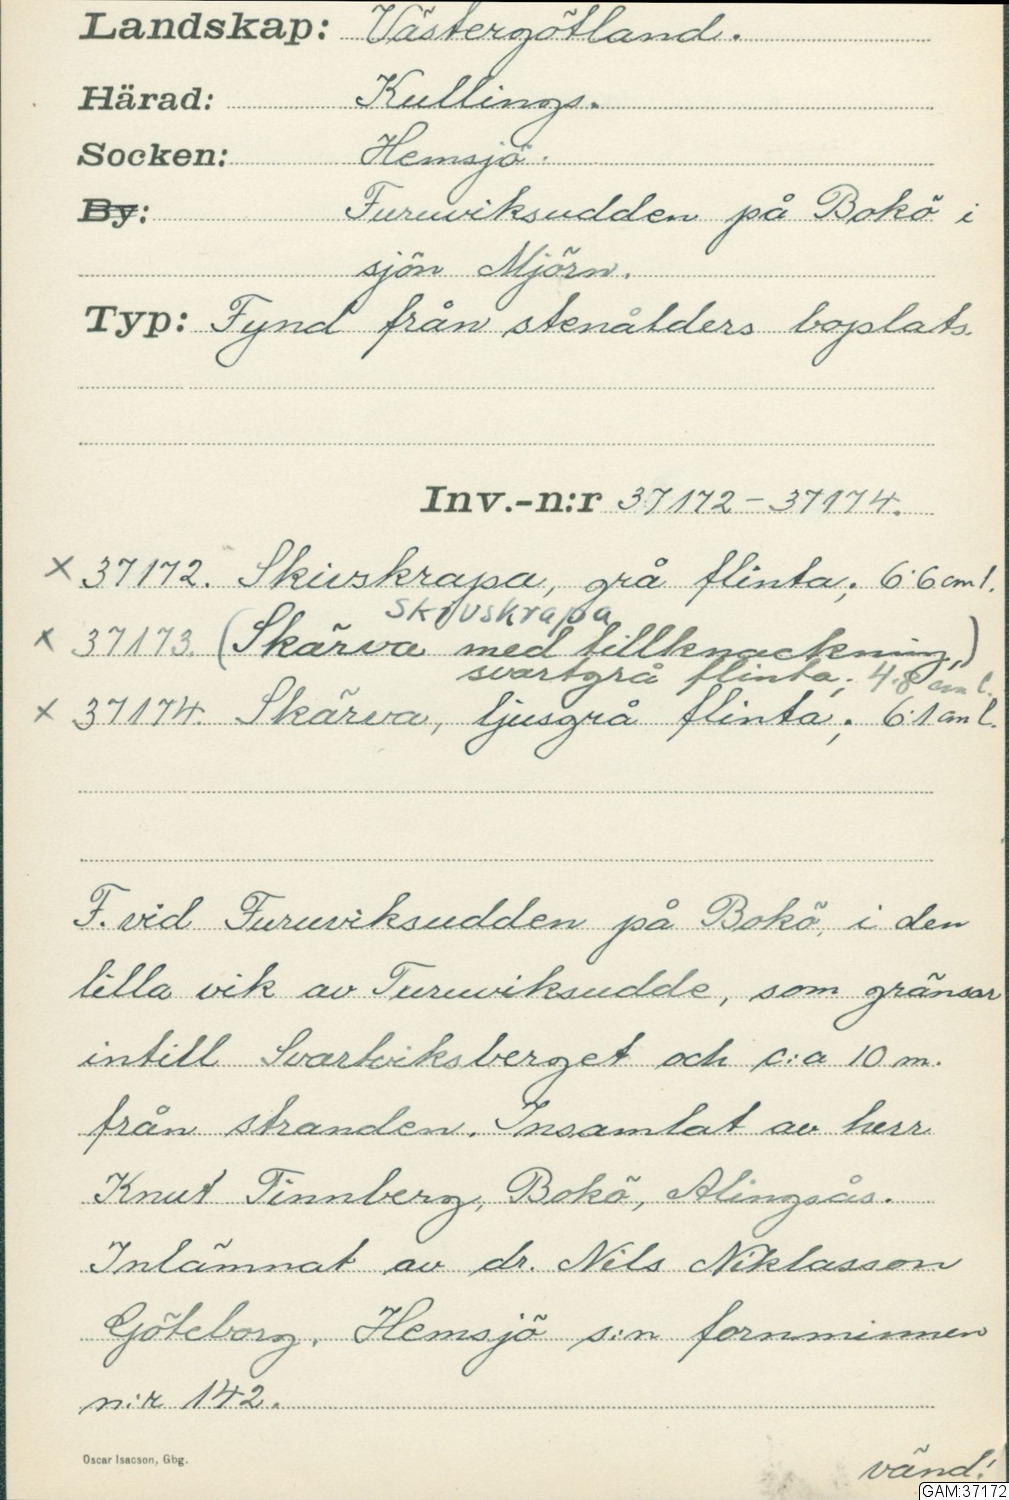 Landskap: Västergötland.
Härad: Kullings.
Socken: Hemsjö.
By: Furuviksudden på Bokö i
sjön Mjörn.
Typ: Fynd från stenålders boplats.
Inv.-n:r 37172-37174.
× 37172. Skivskrapa, grå flinta; 6·6 cm l.
Skivskrapa
× 37173. (Skärva med tillknackning,)
svartgrå flinta; 4·8 cm l.
× 37174. Skärva, ljusgrå flinta; 6·1 cm l.
F. vid Furuviksudden på Bokö, i den
lilla vik av Furuviksudde, som gränsar
intill Svartviksberget och c:a 10 m.
från stranden. Insamlat av herr
Knut Finnberg, Bokö, Alingsås.
Inlämnat av dr. Nils Niklasson
Göteborg. Hemsjö s:n fornminnen
n:r 142.
Oscar Isacson, Gbg.
vänd!
GAM:37172